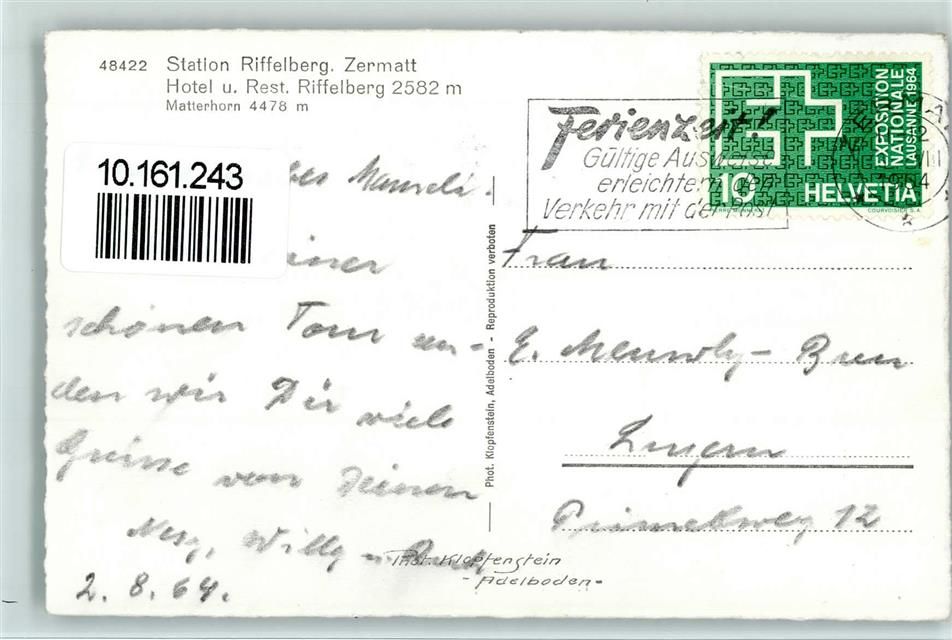 48422 Station Riffelberg. Zermatt
Hotel u. Rest. Riffelberg 2582 m
Matterhorn 4478 m
10.161.243
schönen Tour sen-
den wir Dir viele
Grüsse von Deinen
Willy
2. 8. 64.
Phot. Klopfenstein, Adelboden - Reproduktion verboten
Phot. Klopfenstein
- Adelboden -
Ferienzeit!
Gültige Ausweise
erleichtern den
Verkehr mit der Post
EXPOSITION
NATIONALE
LAUSANNE 1964
10 HELVETIA
COURVOISIER S.A.
Frau
E. Meuwly-
Luzern
12